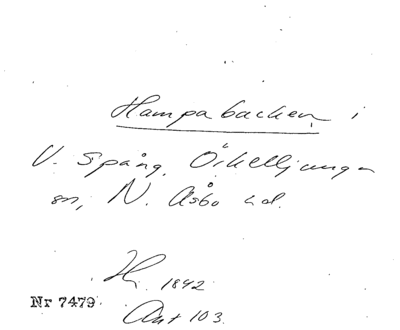 Hampabacken i
V. Spång, Örkelljunga
sn, N. Åsbo hd.
Hi. 1842
Nr 7479
Ant 103